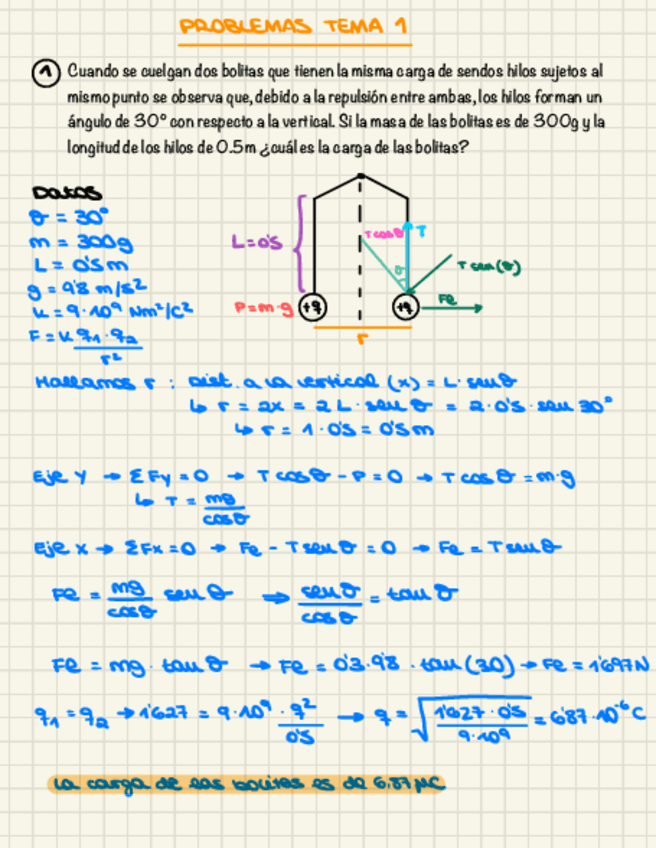 PROBLEMAS TEMA 1
1 Cuando se cuelgan dos bolitas que tienen la misma carga de sendos hilos sujetos al
mismo punto se observa que, debido a la repulsión entre ambas, los hilos forman un
ángulo de 30° con respecto a la vertical. Si la masa de las bolitas es de 300g y la
longitud de los hilos de 0.5m ¿cuál es la carga de las bolitas?
Datos
θ = 30°
m = 300g
L = 0'5m
g = 9'8 m/s²
k = 9·10⁹ Nm²/C²
F = K q₁·q₂
r²
L=0'5
P=m·g
+q
+q
T cosθ
T
θ
T sen(θ)
Fe
r
Hallamos r : Dist. a la vertical (x) = L·senθ
↳ r = 2x = 2L·senθ = 2·0'5·sen 30°
↳ r = 1·0'5 = 0'5m
Eje Y → ΣFy = 0 → T cosθ - P = 0 → T cosθ = m·g
↳ T = mg
cosθ
Eje X → ΣFx=0 → Fe - T senθ = 0 → Fe = T senθ
Fe = mg/cosθ senθ ⇒ senθ/cosθ = tanθ
Fe = mg·tanθ → Fe = 0'3·9'8·tan(30) → Fe = 1'697N
q₁ = q₂ → 1'627 = 9·10⁹·q²/0'5 → q = √(1'627·0'5/9·10⁹) = 6'87·10⁻⁶C
La carga de las bolitas es de 6.87μC